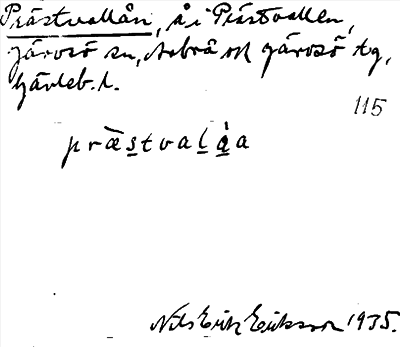 Prästvallån, å i Prästvallen,
Järvsö sn, Arbrå och Järvsö tg,
Gävleb. l.
115
præ̀s̲tval̲å̲̀a
Nils Erik Eriksson 1935.